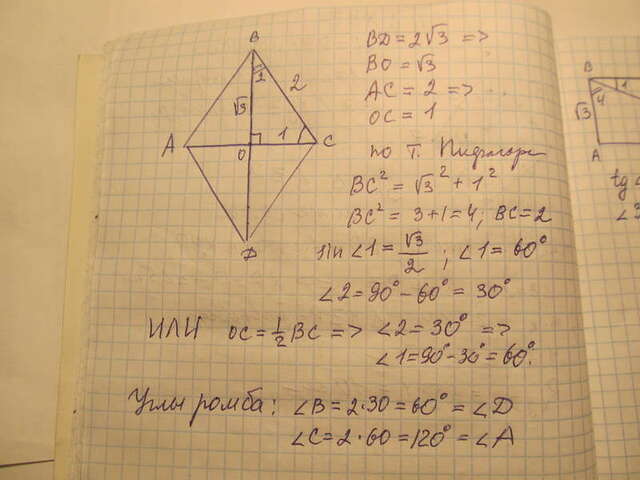 B
2
2
√3
1
A
O
C
D
BD = 2√3 =>
BO = √3
AC = 2 =>
OC = 1
по т. Пифагора
BC² = √3² + 1²
BC² = 3+1=4; BC=2
sin ∠1 = √3/2 ; ∠1 = 60°
∠2=90°-60° = 30°
ИЛИ OC = 1/2 BC => ∠2=30° =>
∠1=90°-30°=60°.
Углы ромба: ∠B = 2·30 = 60° = ∠D
∠C = 2·60 = 120° = ∠A
B
1
4
√3
A
tg